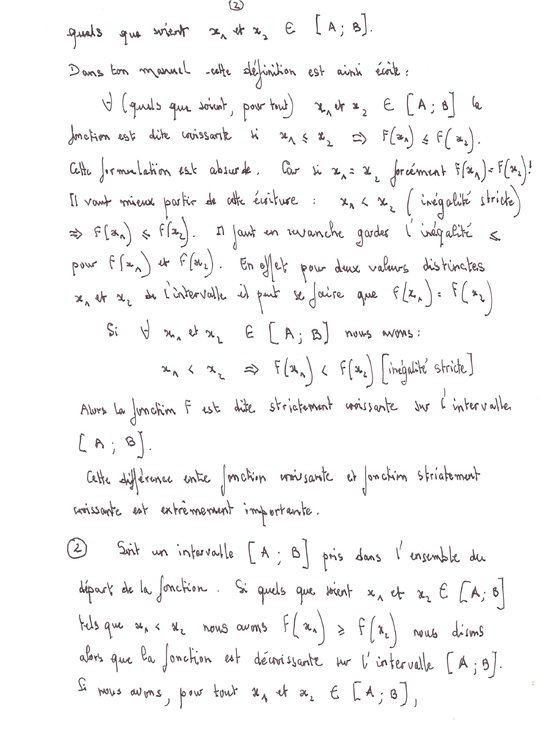 (2)
quels que soient x₁ et x₂ ∈ [A ; B].
Dans ton manuel cette définition est ainsi écrite :
∀ (quels que soient, pour tout) x₁ et x₂ ∈ [A ; B] la
fonction est dite croissante si x₁ ⩽ x₂ ⇒ F(x₁) ⩽ F(x₂).
Cette formulation est absurde. Car si x₁ = x₂ forcément F(x₁) = F(x₂) !
Il vaut mieux partir de cette écriture : x₁ < x₂ (inégalité stricte)
⇒ F(x₁) ⩽ F(x₂). Il faut en revanche garder l'inégalité ⩽
pour F(x₁) et F(x₂). En effet pour deux valeurs distinctes
x₁ et x₂ de l'intervalle il peut se faire que F(x₁) = F(x₂)
Si ∀ x₁ et x₂ ∈ [A ; B] nous avons :
x₁ < x₂ ⇒ F(x₁) < F(x₂) [inégalité stricte]
Alors la fonction F est dite strictement croissante sur l'intervalle
[A ; B].
Cette différence entre fonction croissante et fonction strictement
croissante est extrêmement importante.
② Soit un intervalle [A ; B] pris dans l'ensemble du
départ de la fonction. Si quels que soient x₁ et x₂ ∈ [A ; B]
tels que x₁ < x₂ nous avons F(x₁) ⩾ F(x₂) nous disons
alors que la fonction est décroissante sur l'intervalle [A ; B].
Si nous avons, pour tout x₁ et x₂ ∈ [A ; B],